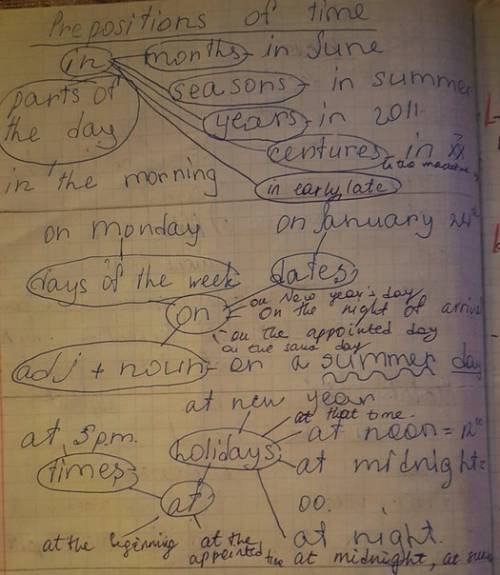 Prepositions of time
in months - in June
parts of the day
seasons - in summer
years - in 2011
centures in XX
in the morning
in early, late
on monday
on January 24
days of the week
dates
on
on New year's day
on the night of
on the appointed day
on the same day
adj + noun - on a summer day
at new year
at that time.
at 5 p.m.
holidays
at noon = 12
times
at midnight =
at
00.
at the beginning
at the appointed time
at night.
at midnight, at